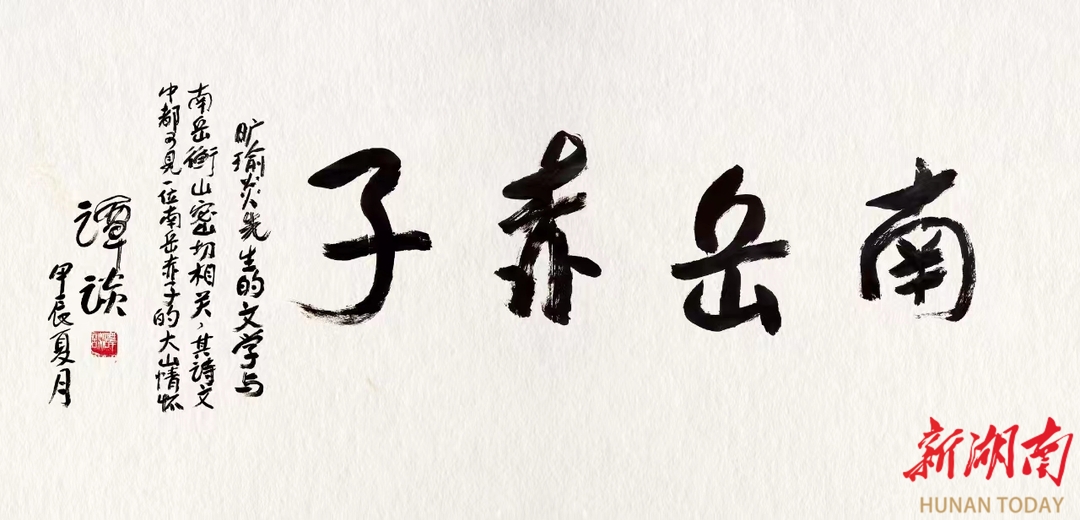 南岳赤子
旷瑜炎先生的文学与
南岳衡山密切相关，其詩文
中都可見一位南岳赤子的大山情怀
譚谈
甲辰夏月
新湖南
HUNAN TODAY